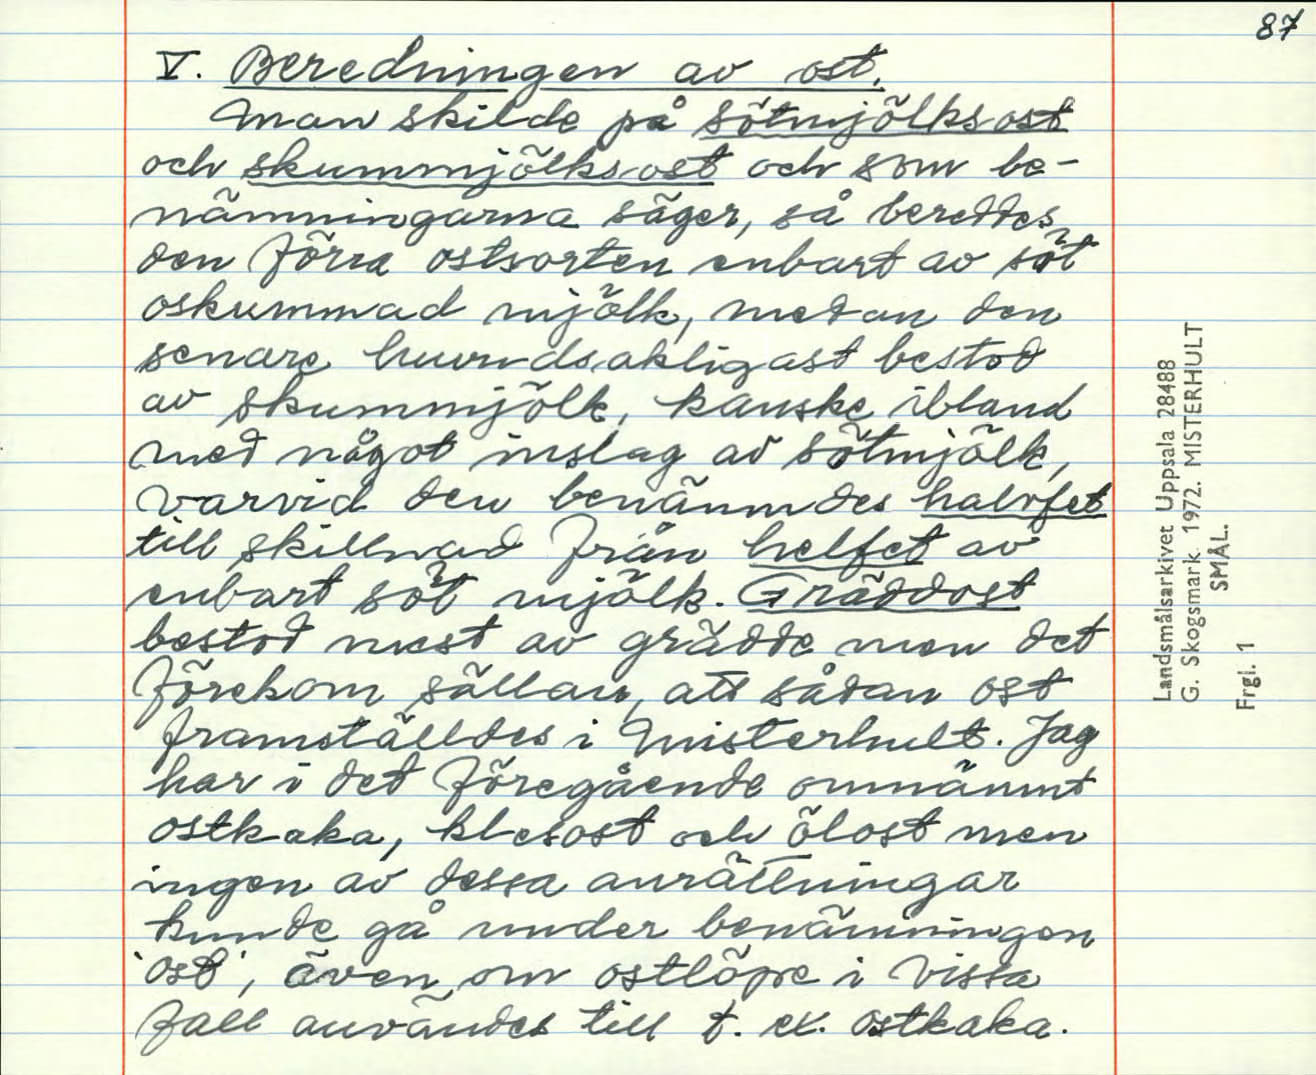 87
V. Beredningen av ost.
Man skilde på sötmjölksost
och skummjölksost och som be-
nämningarna säger, så bereddes
den förra ostsorten enbart av söt
oskummad mjölk, medan den
senare huvudsakligast bestod
av skummjölk, kanske ibland
med något inslag av sötmjölk,
varvid den benämndes halvfet
till skillnad från helfet av
enbart söt mjölk. Gräddost
bestod mest av grädde men det
förekom sällan, att sådan ost
framställdes i Misterhult. Jag
har i det föregående omnämnt
ostkaka, klesost och ölost men
ingen av dessa anrättningar
kunde gå under benämningen
'ost', även om ostlöpe i vissa
fall användes till t. ex. ostkaka.
Landsmålsarkivet Uppsala 28488
G. Skogsmark. 1972. MISTERHULT
SMÅL.
Frgl. 1